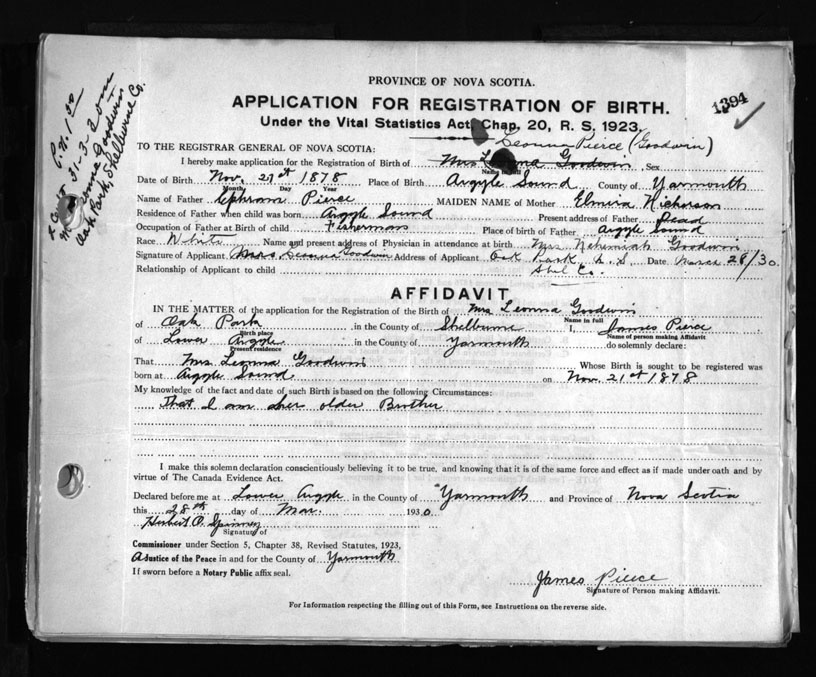 PROVINCE OF NOVA SCOTIA.
1394
APPLICATION FOR REGISTRATION OF BIRTH.
Under the Vital Statistics Act, Chap. 20, R. S. 1923.
Leonna Pierce (Goodwin)
TO THE REGISTRAR GENERAL OF NOVA SCOTIA:
I hereby make application for the Registration of Birth of Mrs Leonna Goodwin, Sex
Name in full
Date of Birth Nov. 21st 1878 Place of Birth Argyle Sound County of Yarmouth
Month Day Year
Name of Father Ephraim Pierce MAIDEN NAME of Mother Elmira Nickerson
Residence of Father when child was born Argyle Sound Present address of Father Dead
Occupation of Father at Birth of child Fisherman Place of birth of Father Argyle Sound
Race White Name and present address of Physician in attendance at birth Mrs. Nehemiah Goodwin
Signature of Applicant Mrs Leonna Goodwin Address of Applicant Oak Park N. S. Date March 28/30.
Relationship of Applicant to child Shel Co.
AFFIDAVIT
IN THE MATTER of the application for the Registration of the Birth of Mrs Leonna Goodwin
Name in full
of Oak Park in the County of Shelburne I, James Pierce
Birth place Name of person making Affidavit
of Lower Argyle in the County of Yarmouth do solemnly declare:
Present residence
That Mrs. Leonna Goodwin Whose Birth is sought to be registered was
born at Argyle Sound on Nov. 21st 1878.
My knowledge of the fact and date of such Birth is based on the following Circumstances:
That I am her older Brother
I make this solemn declaration conscientiously believing it to be true, and knowing that it is of the same force and effect as if made under oath and by
virtue of The Canada Evidence Act.
Declared before me at Lower Argyle in the County of Yarmouth and Province of Nova Scotia
this 28th day of Mar. 1930
Herbert A. Spinney
Signature of
Commissioner under Section 5, Chapter 38, Revised Statutes, 1923,
A Justice of the Peace in and for the County of Yarmouth
If sworn before a Notary Public affix seal.
James Pierce
Signature of Person making Affidavit.
For Information respecting the filling out of this Form, see Instructions on the reverse side.
P. N. 1 00
31-3-30
Leonna Goodwin
Oak Park, Shelburne Co.